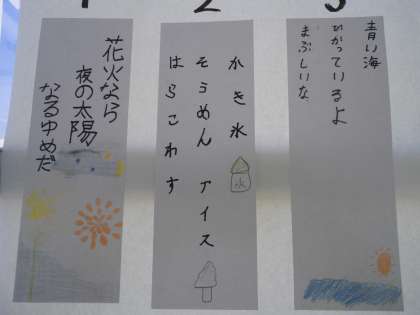 1
花火なら
夜の太陽
なるゆめだ
2
かき氷
そうめん アイス
はらこわす
氷
3
青い海
ひかっているよ
まぶしいな